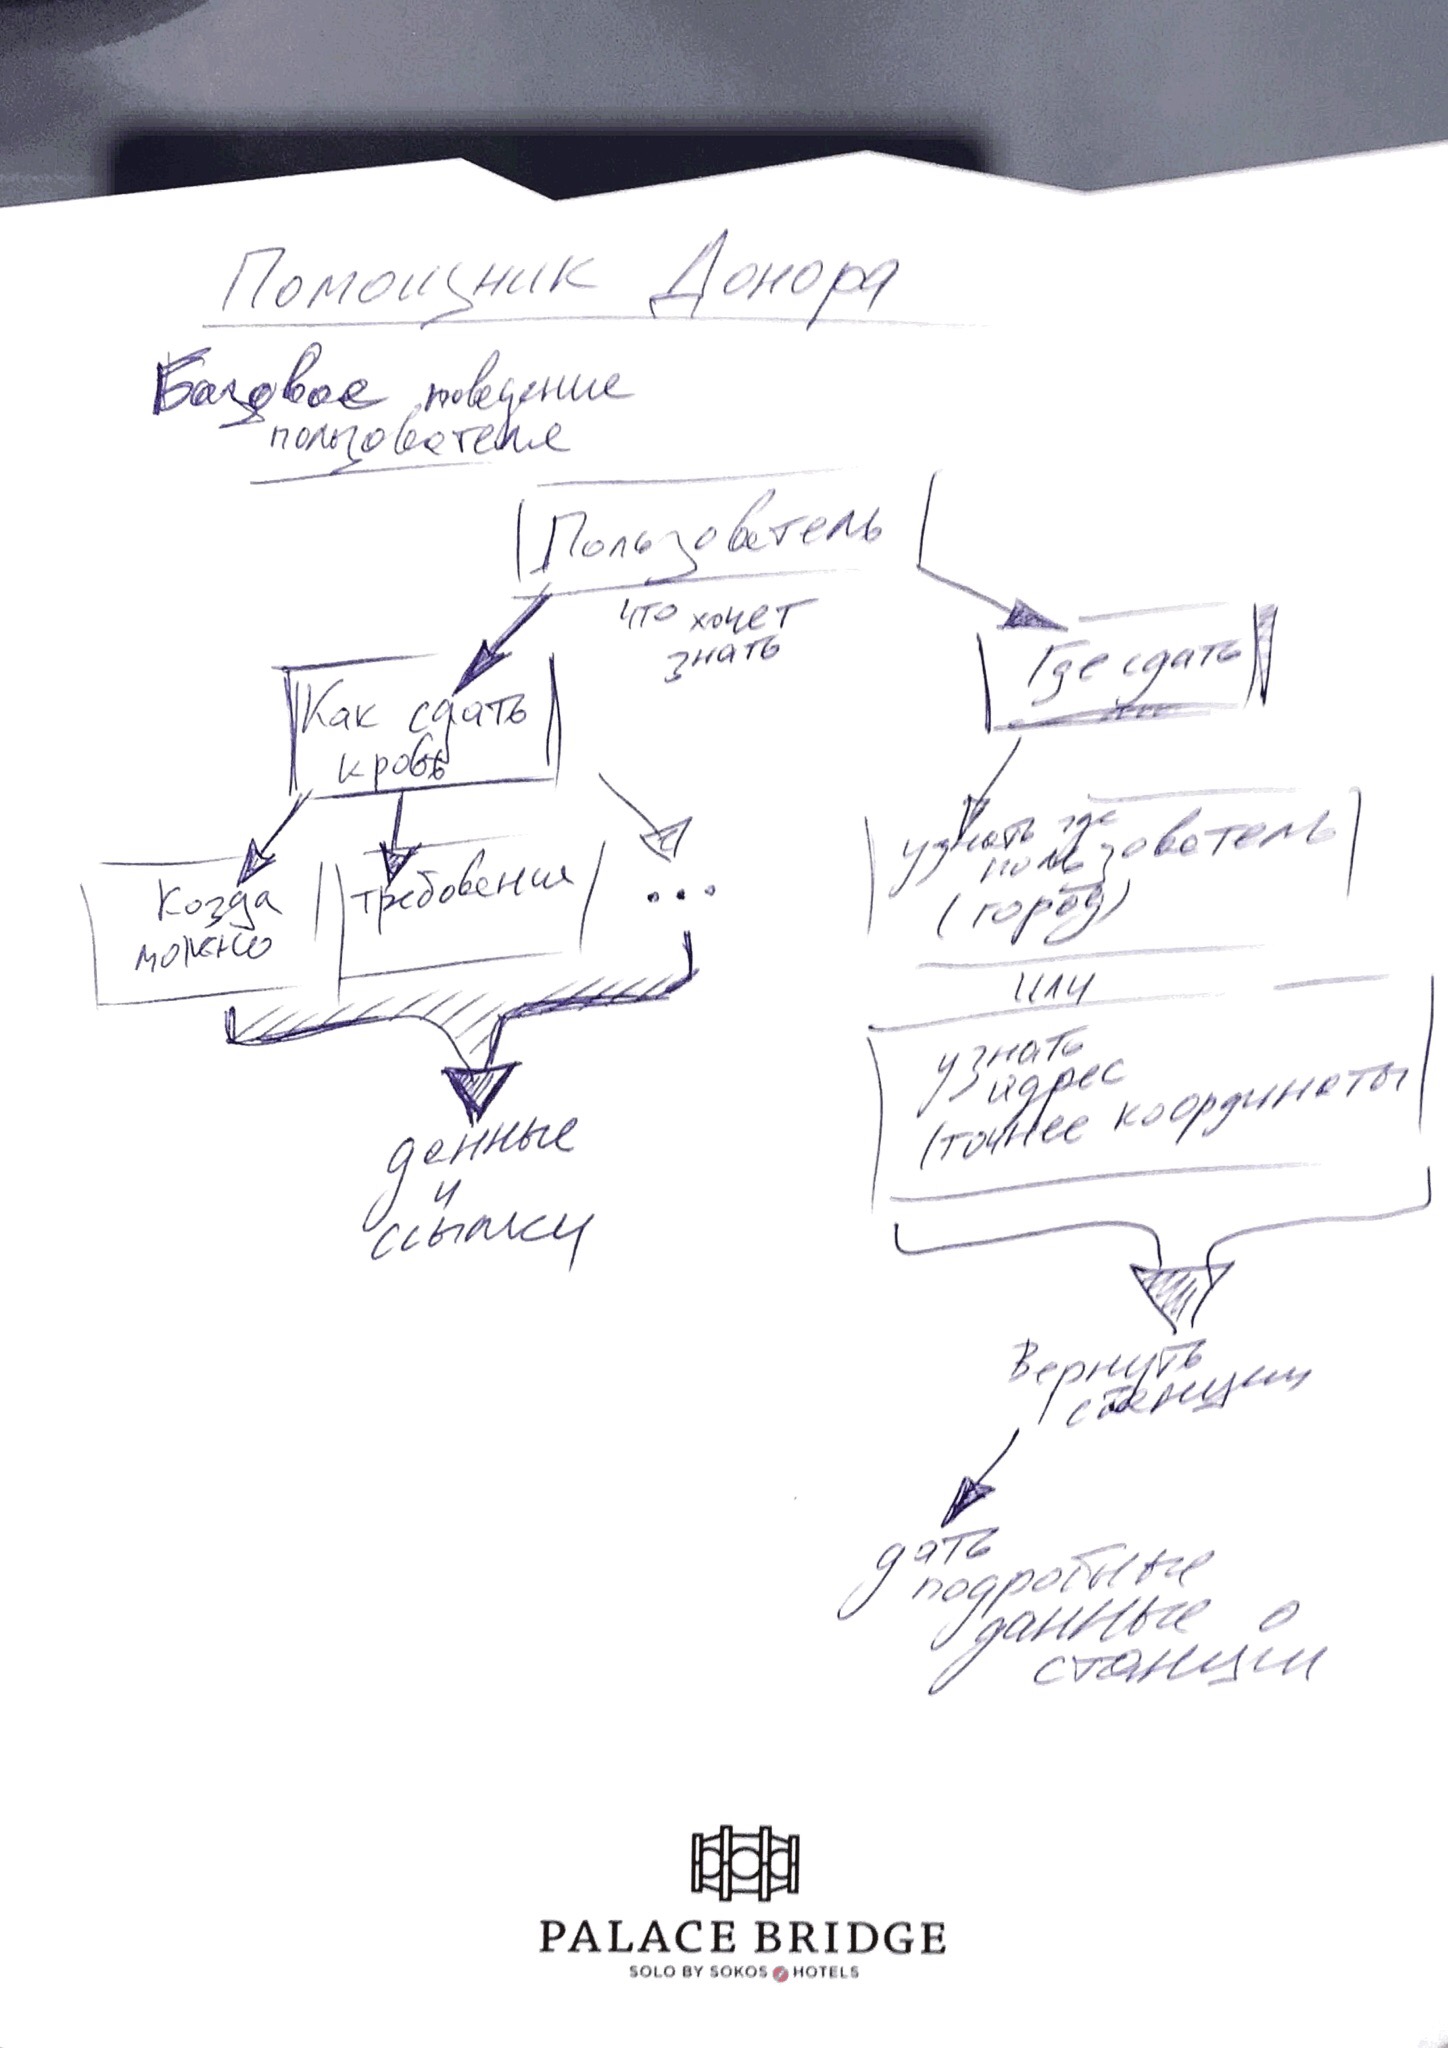 Помощник Донора
Базовое поведение
пользователя
Пользователь
что хочет
знать
Как сдать
кровь
Когда
можно
требования
...
данные
и
ссылки
Где сдать
узнать где
пользователь
(город)
или
узнать
адрес
(точнее координаты
Вернуть
станции
дать
подробные
данные о
станции
PALACE BRIDGE
SOLO BY SOKOS HOTELS